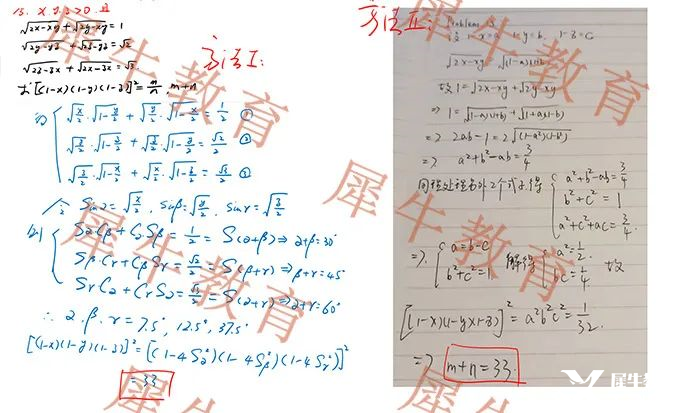 15. x.y.z>0 且
√2x-xy + √2y-xy = 1
√2y-yz + √2z-yz = √2
√2z-zx + √2x-zx = √3.
求[(1-x)(1-y)(1-z)]² = m/n, m+n
方法I:
√x/2 · √1-y/2 + √y/2 · √1-x/2 = 1/2 ①
√y/2 · √1-z/2 + √z/2 · √1-y/2 = √2/2 ②
√z/2 · √1-x/2 + √x/2 · √1-z/2 = √3/2 ③
令 Sinα=√x/2, Sinβ=√y/2, Sinγ=√z/2
则 SαCβ + CαSβ = 1/2 = S(α+β) ⇒ α+β=30°
SβCγ + CβSγ = √2/2 = S(β+γ) ⇒ β+γ=45°
SγCα + CγSα = √3/2 = S(α+γ) ⇒ α+γ=60°
∴ α.β.γ = 7.5°, 12.5°, 37.5°
[(1-x)(1-y)(1-z)]² = [(1-4Sα²)(1-4Sβ²)(1-4Sγ²)]²
= 33
方法II:
Problems 15
设 1-x=a, 1-y=b, 1-z=c
√2x-xy = √(1-a)(1+b)
故 1=√2x-xy + √2y-xy
⇒ 1=√(1-a)(1+b) + √(1+a)(1-b)
⇒ 2ab-1 = 2√(1-a²)(1-b²)
⇒ a²+b²-ab = 3/4
同理处理另外2个式子.得
a²+b²-ab=3/4
b²+c² = 1
a²+c²+ac=3/4.
⇒ a=b-c
b²+c²=1
解得
a²=1/2.
bc=1/4.
故
[(1-x)(1-y)(1-z)]² = a²b²c² = 1/32.
⇒ m+n=33.
犀牛教育
犀牛教育
犀牛教育
犀牛教育